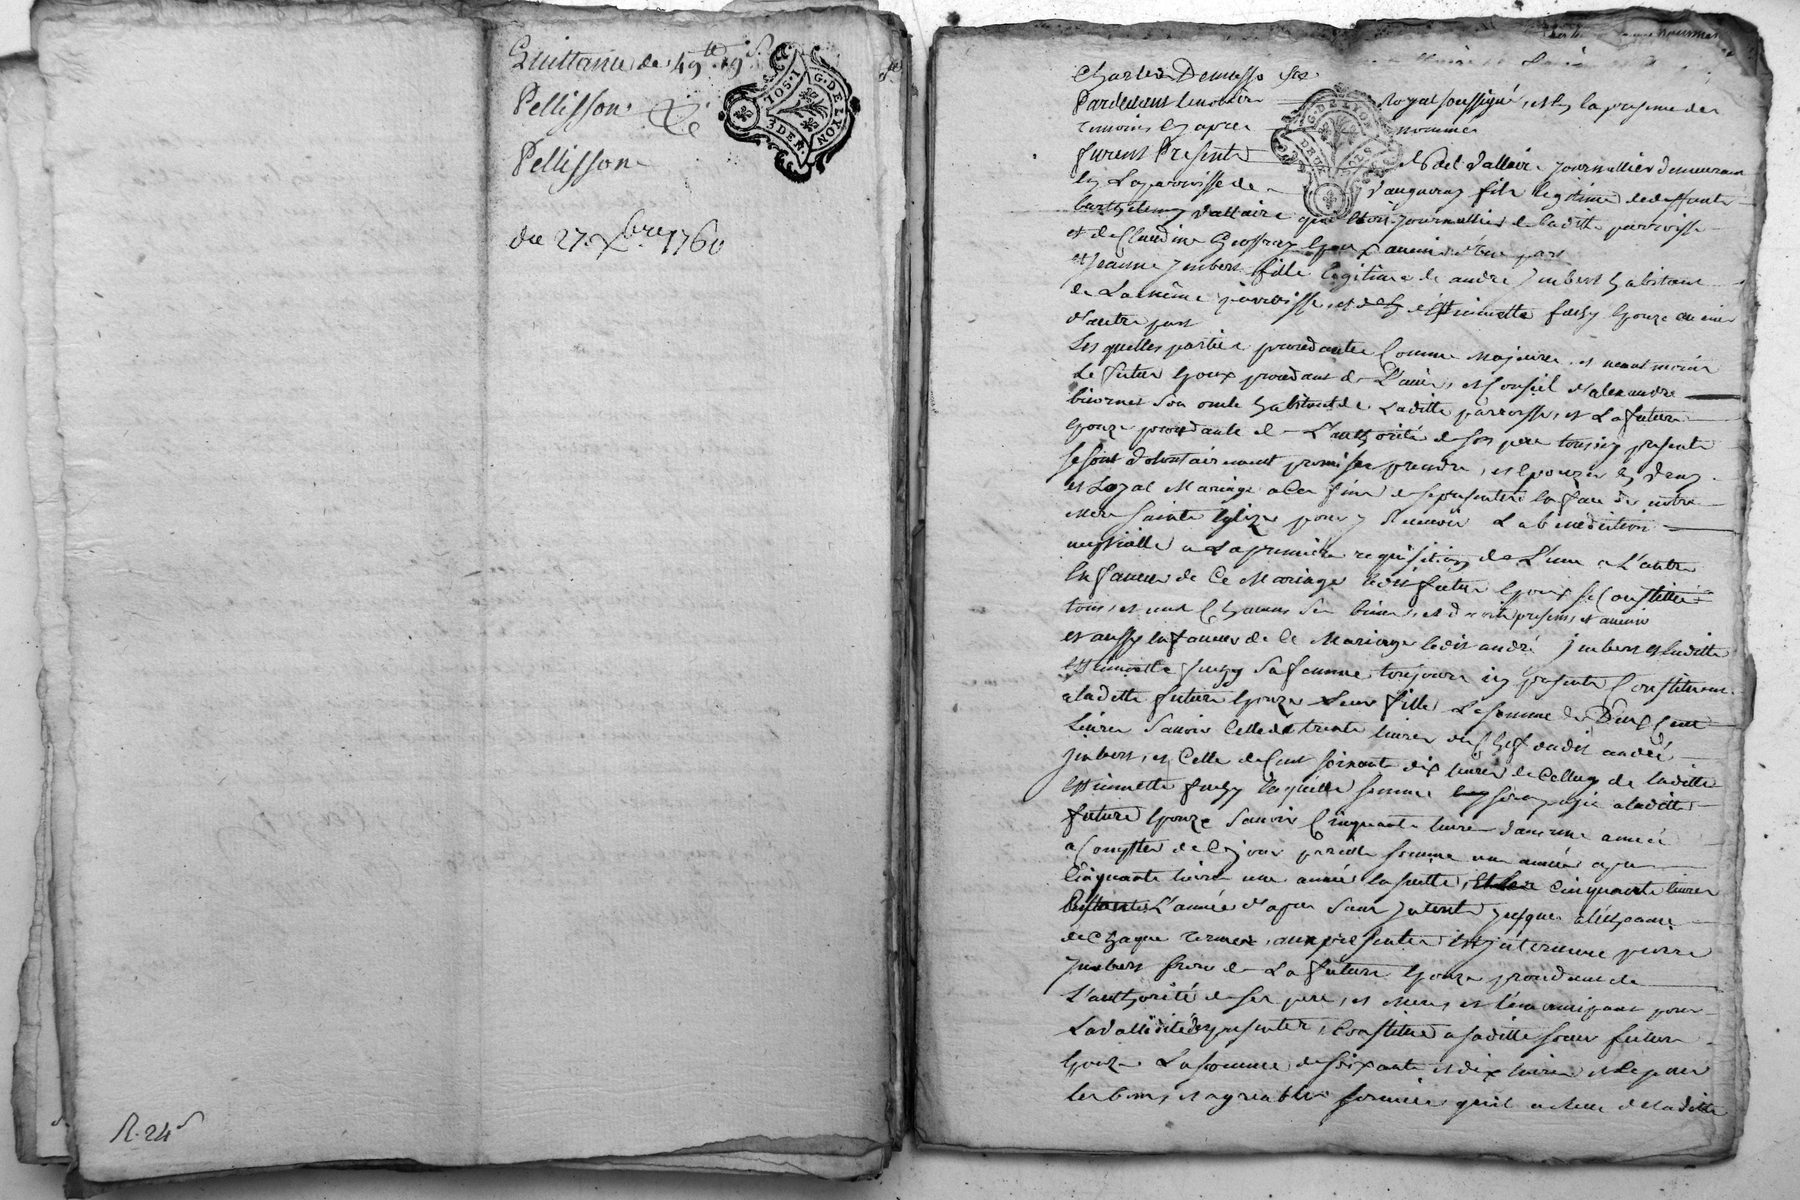 Quittance de 49 lt 19 s
Pellisson
&
Pellisson
du 27. Xbre 1760
G. DE LYON
1 SOL
3 DER.
R. 24 s
Pardevant le notaire royal soussigné, et en la presence des
temoins cy apres nommés
furent Presents
en La parroisse de vaugneray fils legitime de deffunt
barthelemy dallaire quand vivoit journallier de laditte parroisse
et de Claudine Geoffray Epoux avenir d'une part
et jeanne jmbert fille legitime de andré jmbert habitant
de La même parroisse, et de estiennette fuchy Epouze avenir
d'autre part
Les quelles parties procedantes Comme Majeures, et neantmoins
Le futur Epoux procedant de L'avis, et Conseil d'alexandre
son oncle habitant de Laditte parroisse, et La future
Epouze procedante de L'authorité de son pere tous icy presents
se sont volontairement promis se prendre, et Epouzer en vray
et Loyal Mariage a Ces fins de se presenter en face de notre
Mere sainte Eglize pour y recevoir La benediction
nuptialle a La premiere requisition de L'une a L'autre
En faveur de Ce Mariage ledit futur Epoux se Constitue
tous, et uns Chacuns ses biens, et droits presents, et avenir
et aussy en faveur de Ce Mariage ledit andré jmbert et laditte
estiennette fuchy sa femme toujours icy presents Constituent
a laditte future Epouze Leur fille La somme de Deux Cent
Livres savoir Celle de trente livres du Chef dudit andré
jmbert, et Celle de Cent soixante dix livres de Celluy de laditte
estiennette fuchy laquelle somme sera payée a laditte
future Epouze savoir Cinquante livres dans une année
a Compter de Ce jour pareille somme une année apres
Cinquante livres une année ensuitte, Cinquante livres
L'année d'apres sans jnterets jusques a l'echeance
de Chaque terme, aux presentes est jntervenu pierre
jmbert frere de La future Epouze procedant de
L'authorité de ses pere, et Mere, et L'emancipant pour
La validité des presentes, Constitue a saditte soeur future
Epouze La somme de soixante et dix livres et Ce pour
les bons, et agreables services qu'il a reçu de laditte